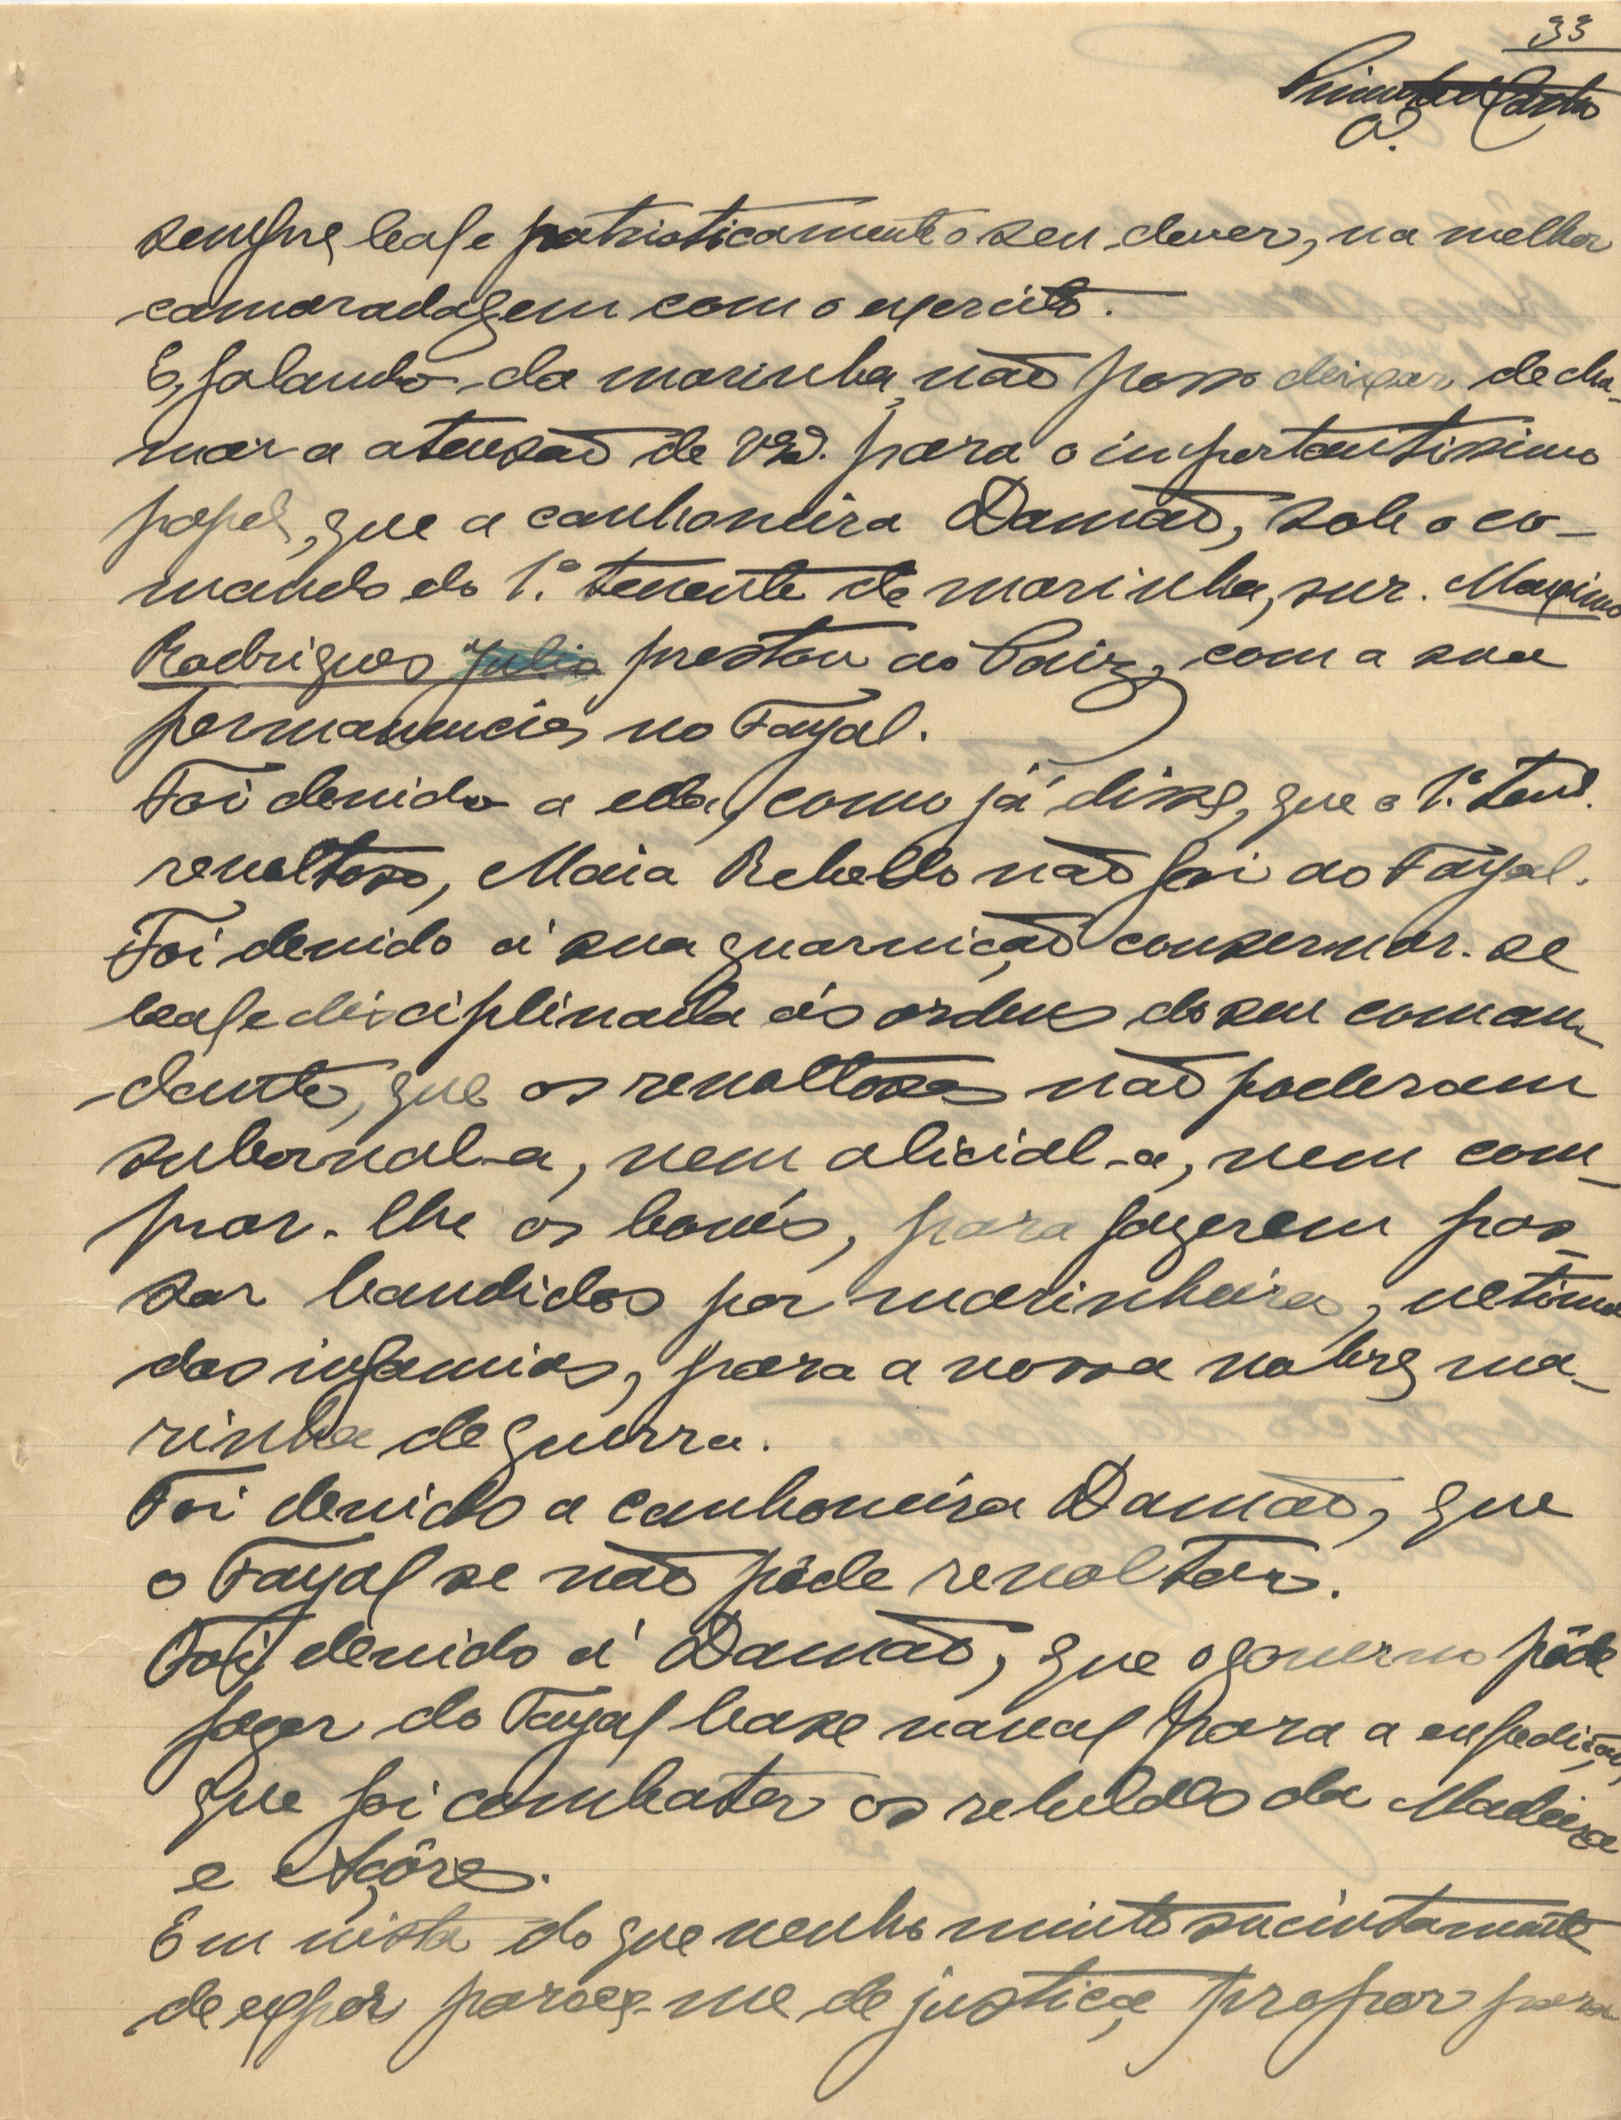 33
sempre leal e patrioticamente o seu dever, na melhor
camaradagem com o exercito.
E, falando da marinha, não posso deixar de cha-
mar a atensão de V. para o importantissimo
papel, que a canhoneira Damão, sob o co-
mando do 1.º tenente de marinha, snr. Maximo
Rodrigues Julio prestou ao Paiz, com a sua
permanencia no Fayal.
Foi devido a ella, como já disse, que o 1.º tent.
revoltoso, Maia Rebello não foi ao Fayal.
Foi devido á sua guarnição conservar-se
leal e disciplinada ás ordens do seu coman-
dante, que os revoltosos não poderam
subornal-a, nem alicial-a, nem com-
prar-lhe os bonés, para fazerem pas-
sar bandidos por marinheiros, ultima
das infamias, para a nossa nobre ma-
rinha de guerra.
Foi devido a canhoneira Damão, que
o Fayal se não pôde revoltar.
Foi devido á Damão, que o governo pôde
fazer do Fayal base naval para a expedição,
que foi combater os rebeldes da Madeira
e Açôres.
Em vista do que venho muito sucintamente
de expôr parece-me de justiça propor para